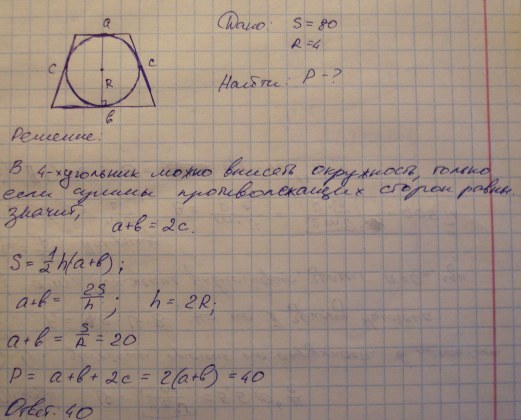 a
Дано: S = 80
R = 4
c c
R
Найти: P - ?
b
Решение:
В 4-хугольник можно вписать окружность, только
если суммы противолежащих сторон равны
значит,
a+b = 2c.
S = 1/2 h(a+b);
a+b = 2S/h ; h = 2R;
a+b = S/R = 20
P = a+b+2c = 2(a+b) = 40
Ответ: 40